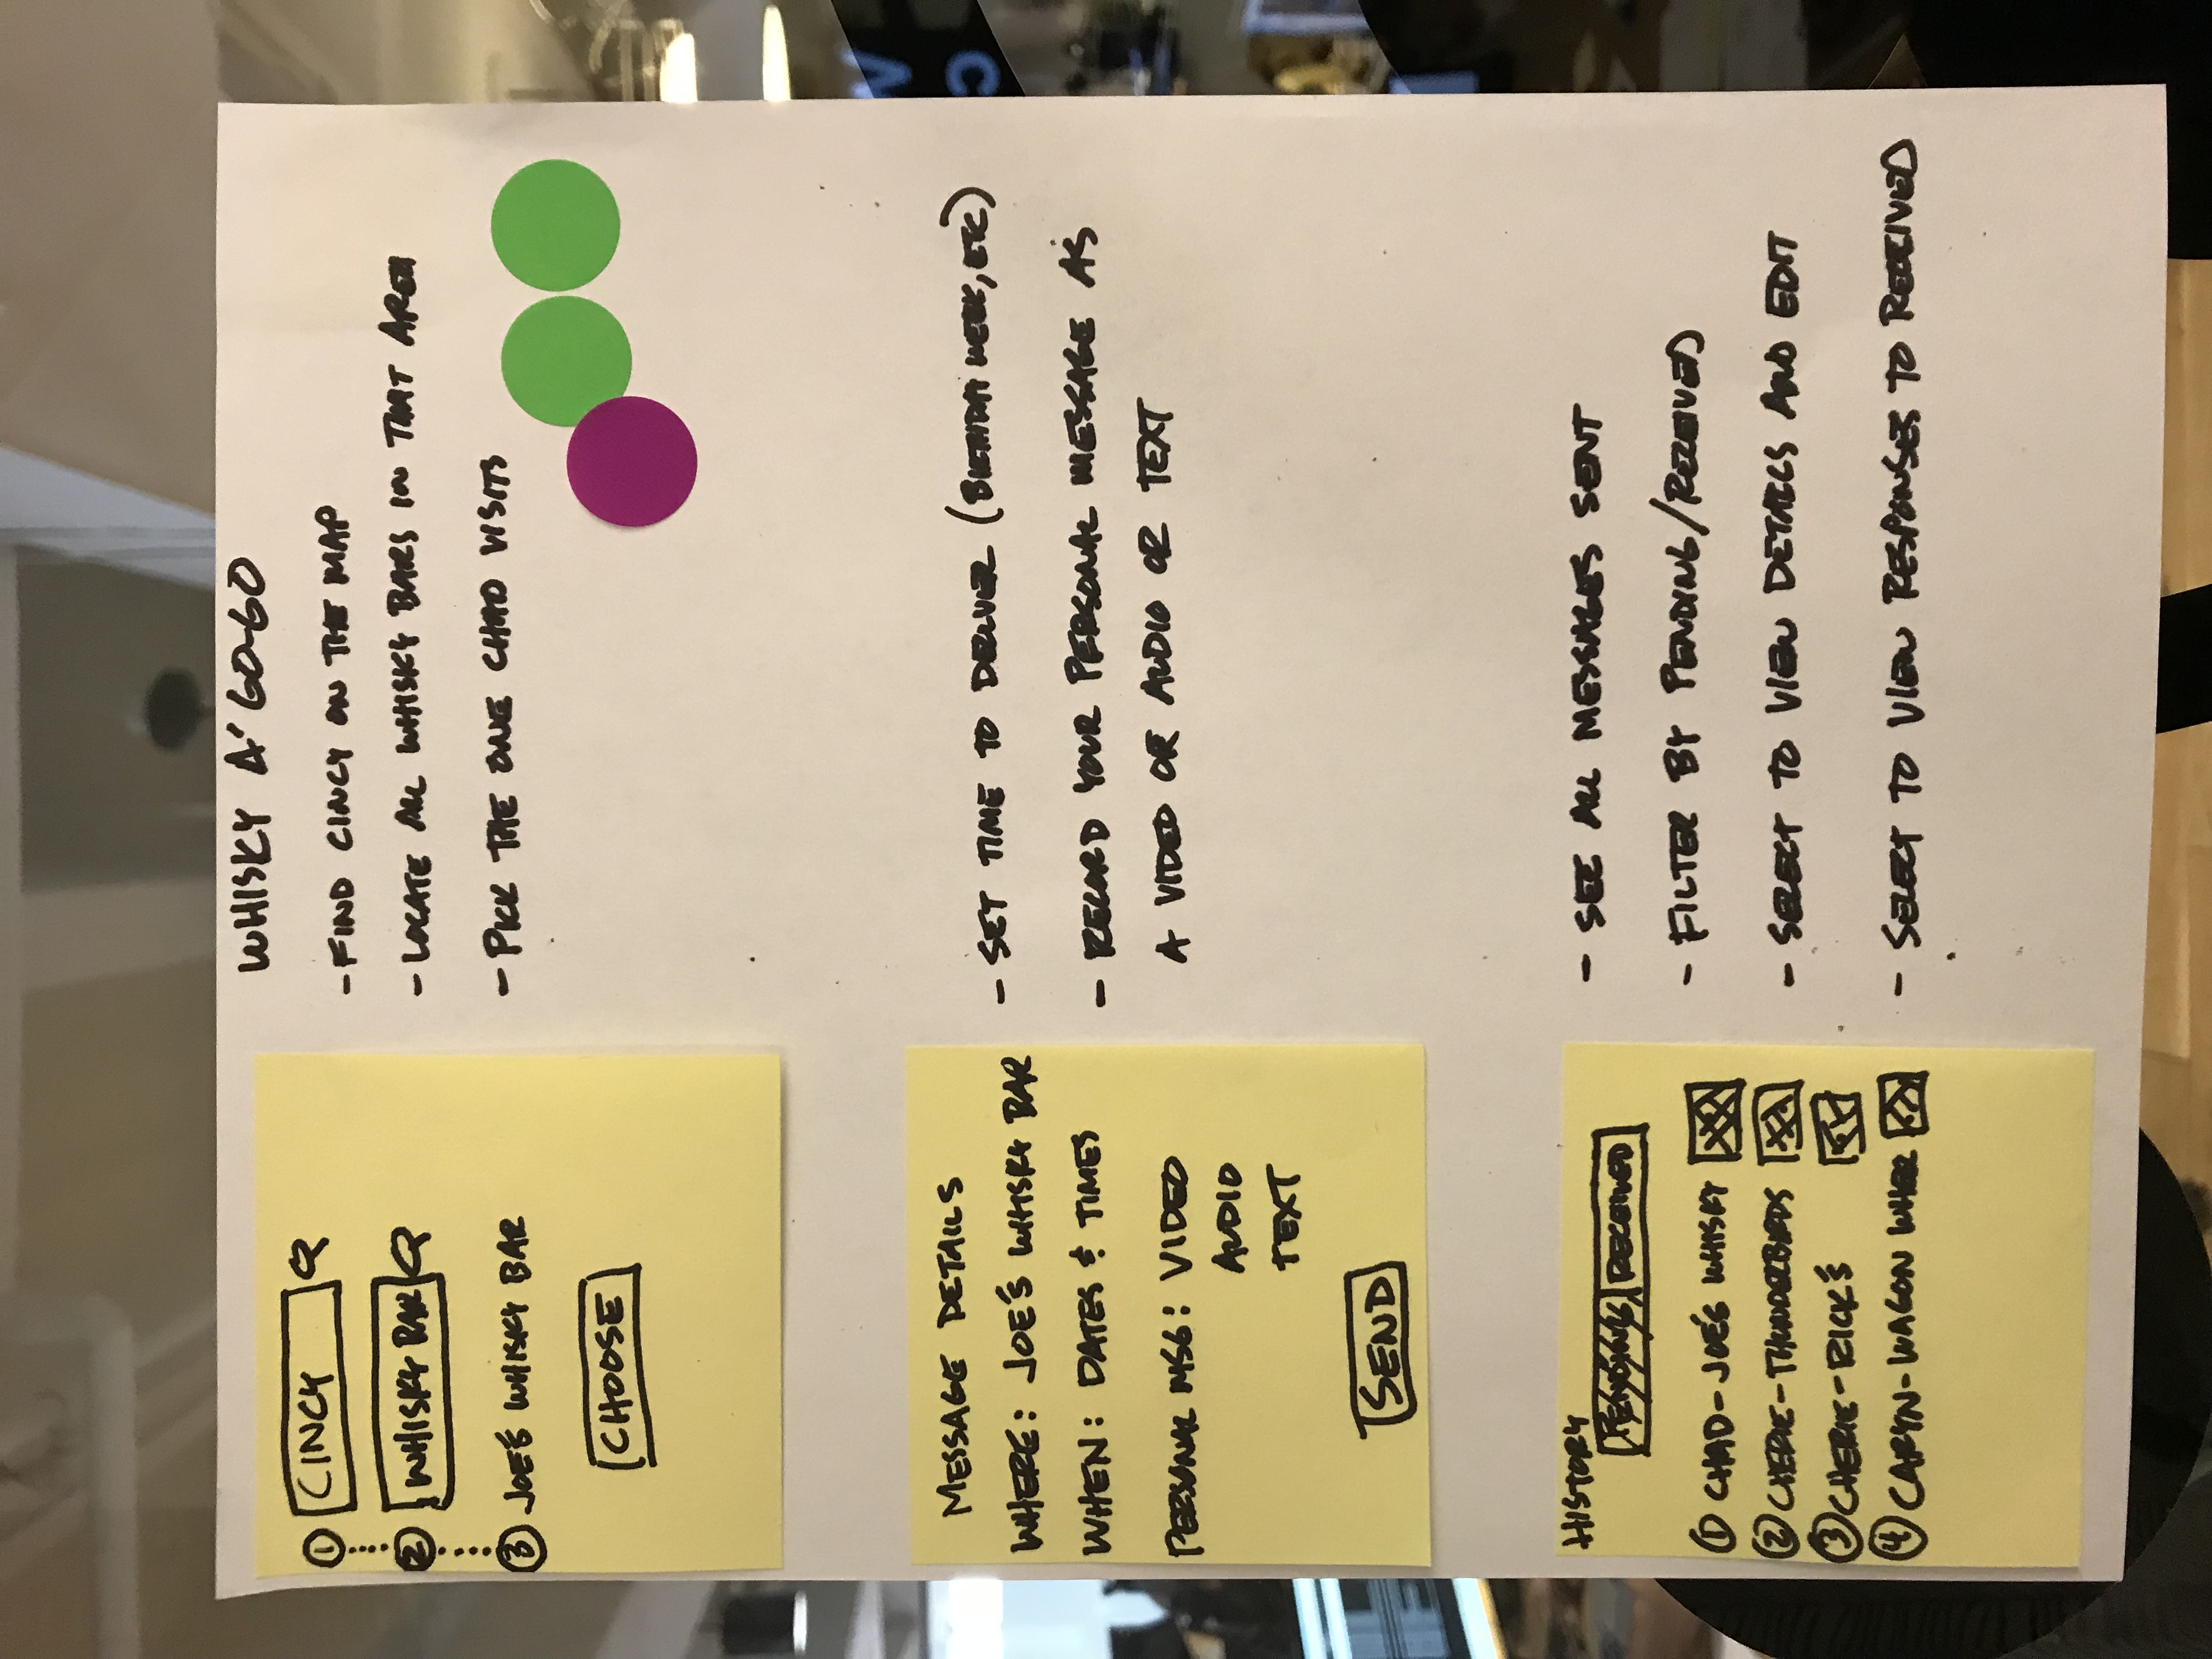 WHISKY A' GO-GO
① CINCY
② WHISKY BAR
③ JOE'S WHISKY BAR
CHOOSE
- FIND CINCY ON THE MAP
- LOCATE ALL WHISKY BARS IN THAT AREA
- PICK THE ONE CHAD VISITS
MESSAGE DETAILS
WHERE: JOE'S WHISKY BAR
WHEN: DATES & TIMES
PERSONAL MSG: VIDEO
AUDIO
TEXT
SEND
- SET TIME TO DELIVER (BIRTHDAY WEEK, ETC)
- RECORD YOUR PERSONAL MESSAGE AS
A VIDEO OR AUDIO OR TEXT
HISTORY
PENDING RECEIVED
① CHAD - JOE'S WHISKY
② CHERIE - THUNDERBIRDS
③ CHERIE - RICK'S
④ CARYN - WAGON WHEEL
- SEE ALL MESSAGES SENT
- FILTER BY PENDING/RECEIVED
- SELECT TO VIEW DETAILS AND EDIT
- SELECT TO VIEW RESPONSES TO RECEIVED